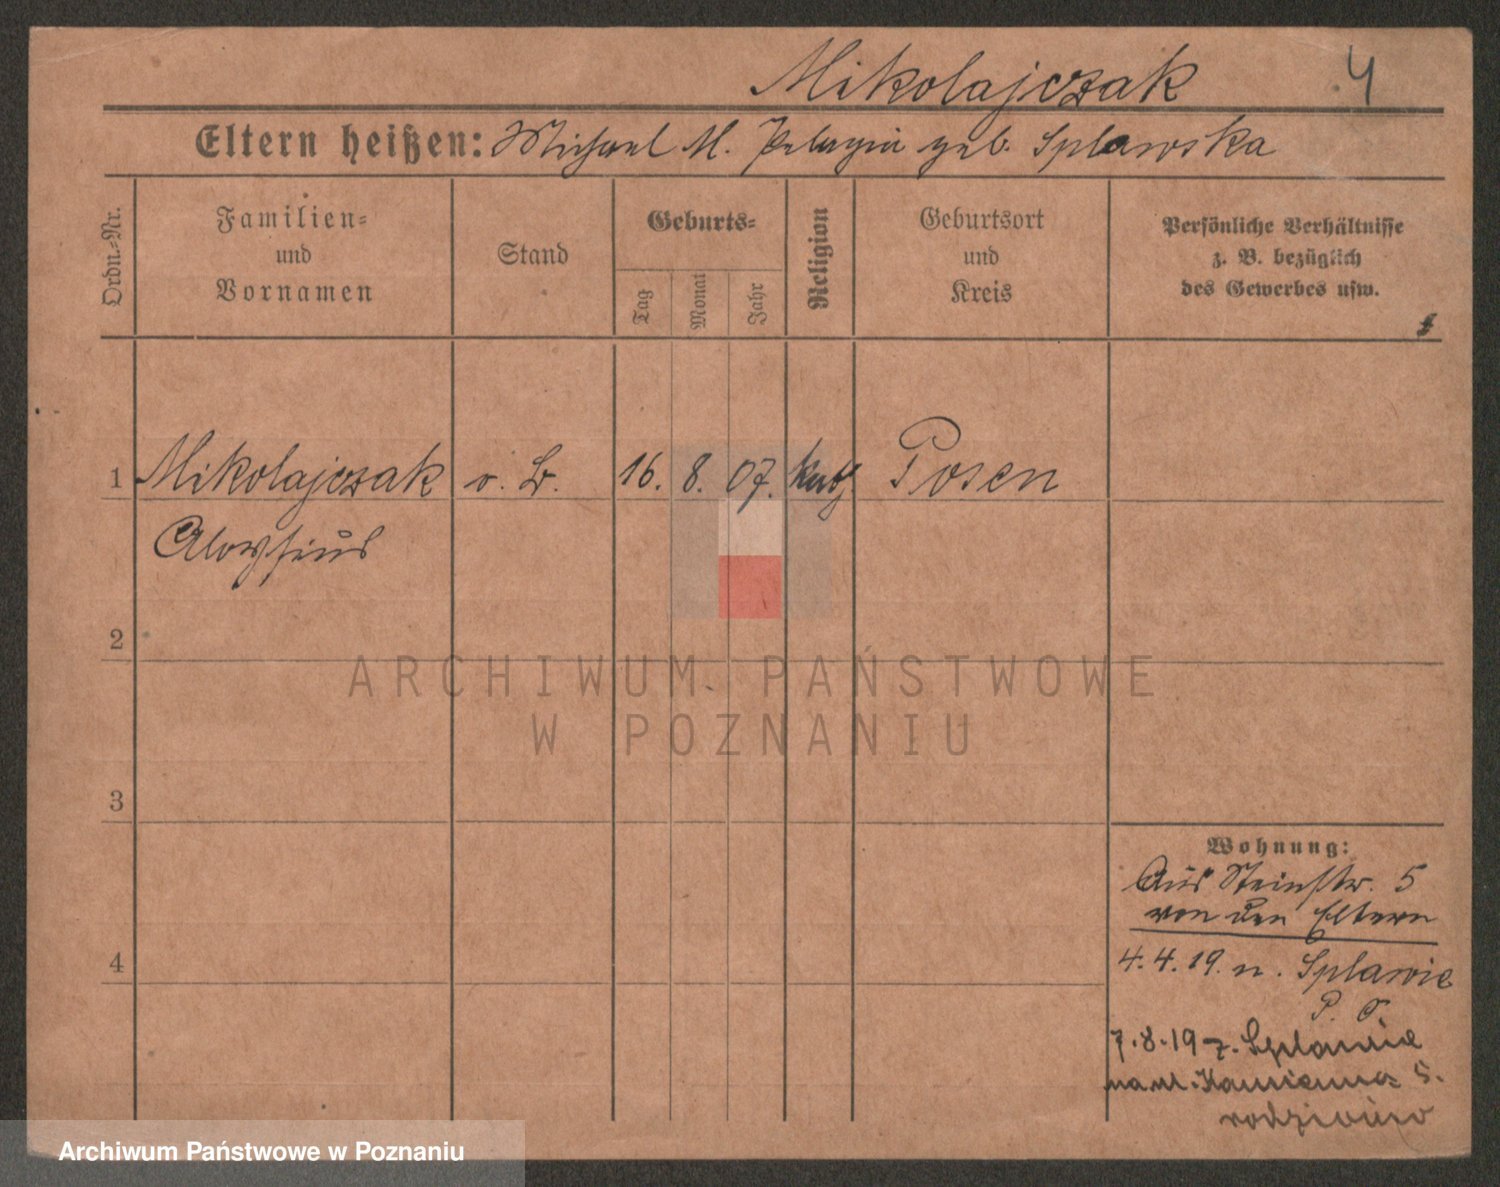 Mikolajczak 4
Eltern heißen: Michael M. Pelagia geb. Splawska
Ordn.-Nr.
Familien-
und
Vornamen
Stand
Geburts-
Tag
Monat
Jahr
Religion
Geburtsort
und
Kreis
Persönliche Verhältnisse
z. B. bezüglich
des Gewerbes usw.
1 Mikolajczak o. B. 16. 8. 07. kath Posen
Aloysius
2
ARCHIWUM PAŃSTWOWE
W POZNANIU
3
Wohnung:
Aus Steinstr. 5
von den Eltern
4
4.4.19. n. Splawie
P. O.
7.8.19 z. Splawia
na ul. Kamienna 5.
rodziców
Archiwum Państwowe w Poznaniu